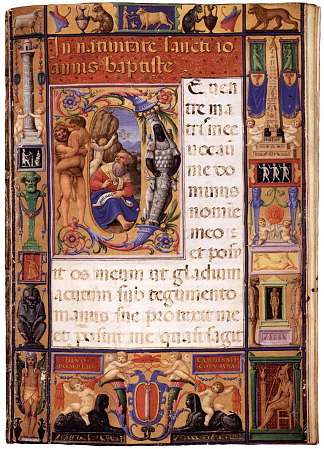 In nativitate sancti io
annis baptiste
E ven
tre ma
tris mee
vocavit
me do
minus
nomine
meo:
et posu
it os meum ut gladium
acutum sub tegumento
manus sue protexit me
et posuit me quasi sagit
DIVO
POMPEIO
CARDINALI